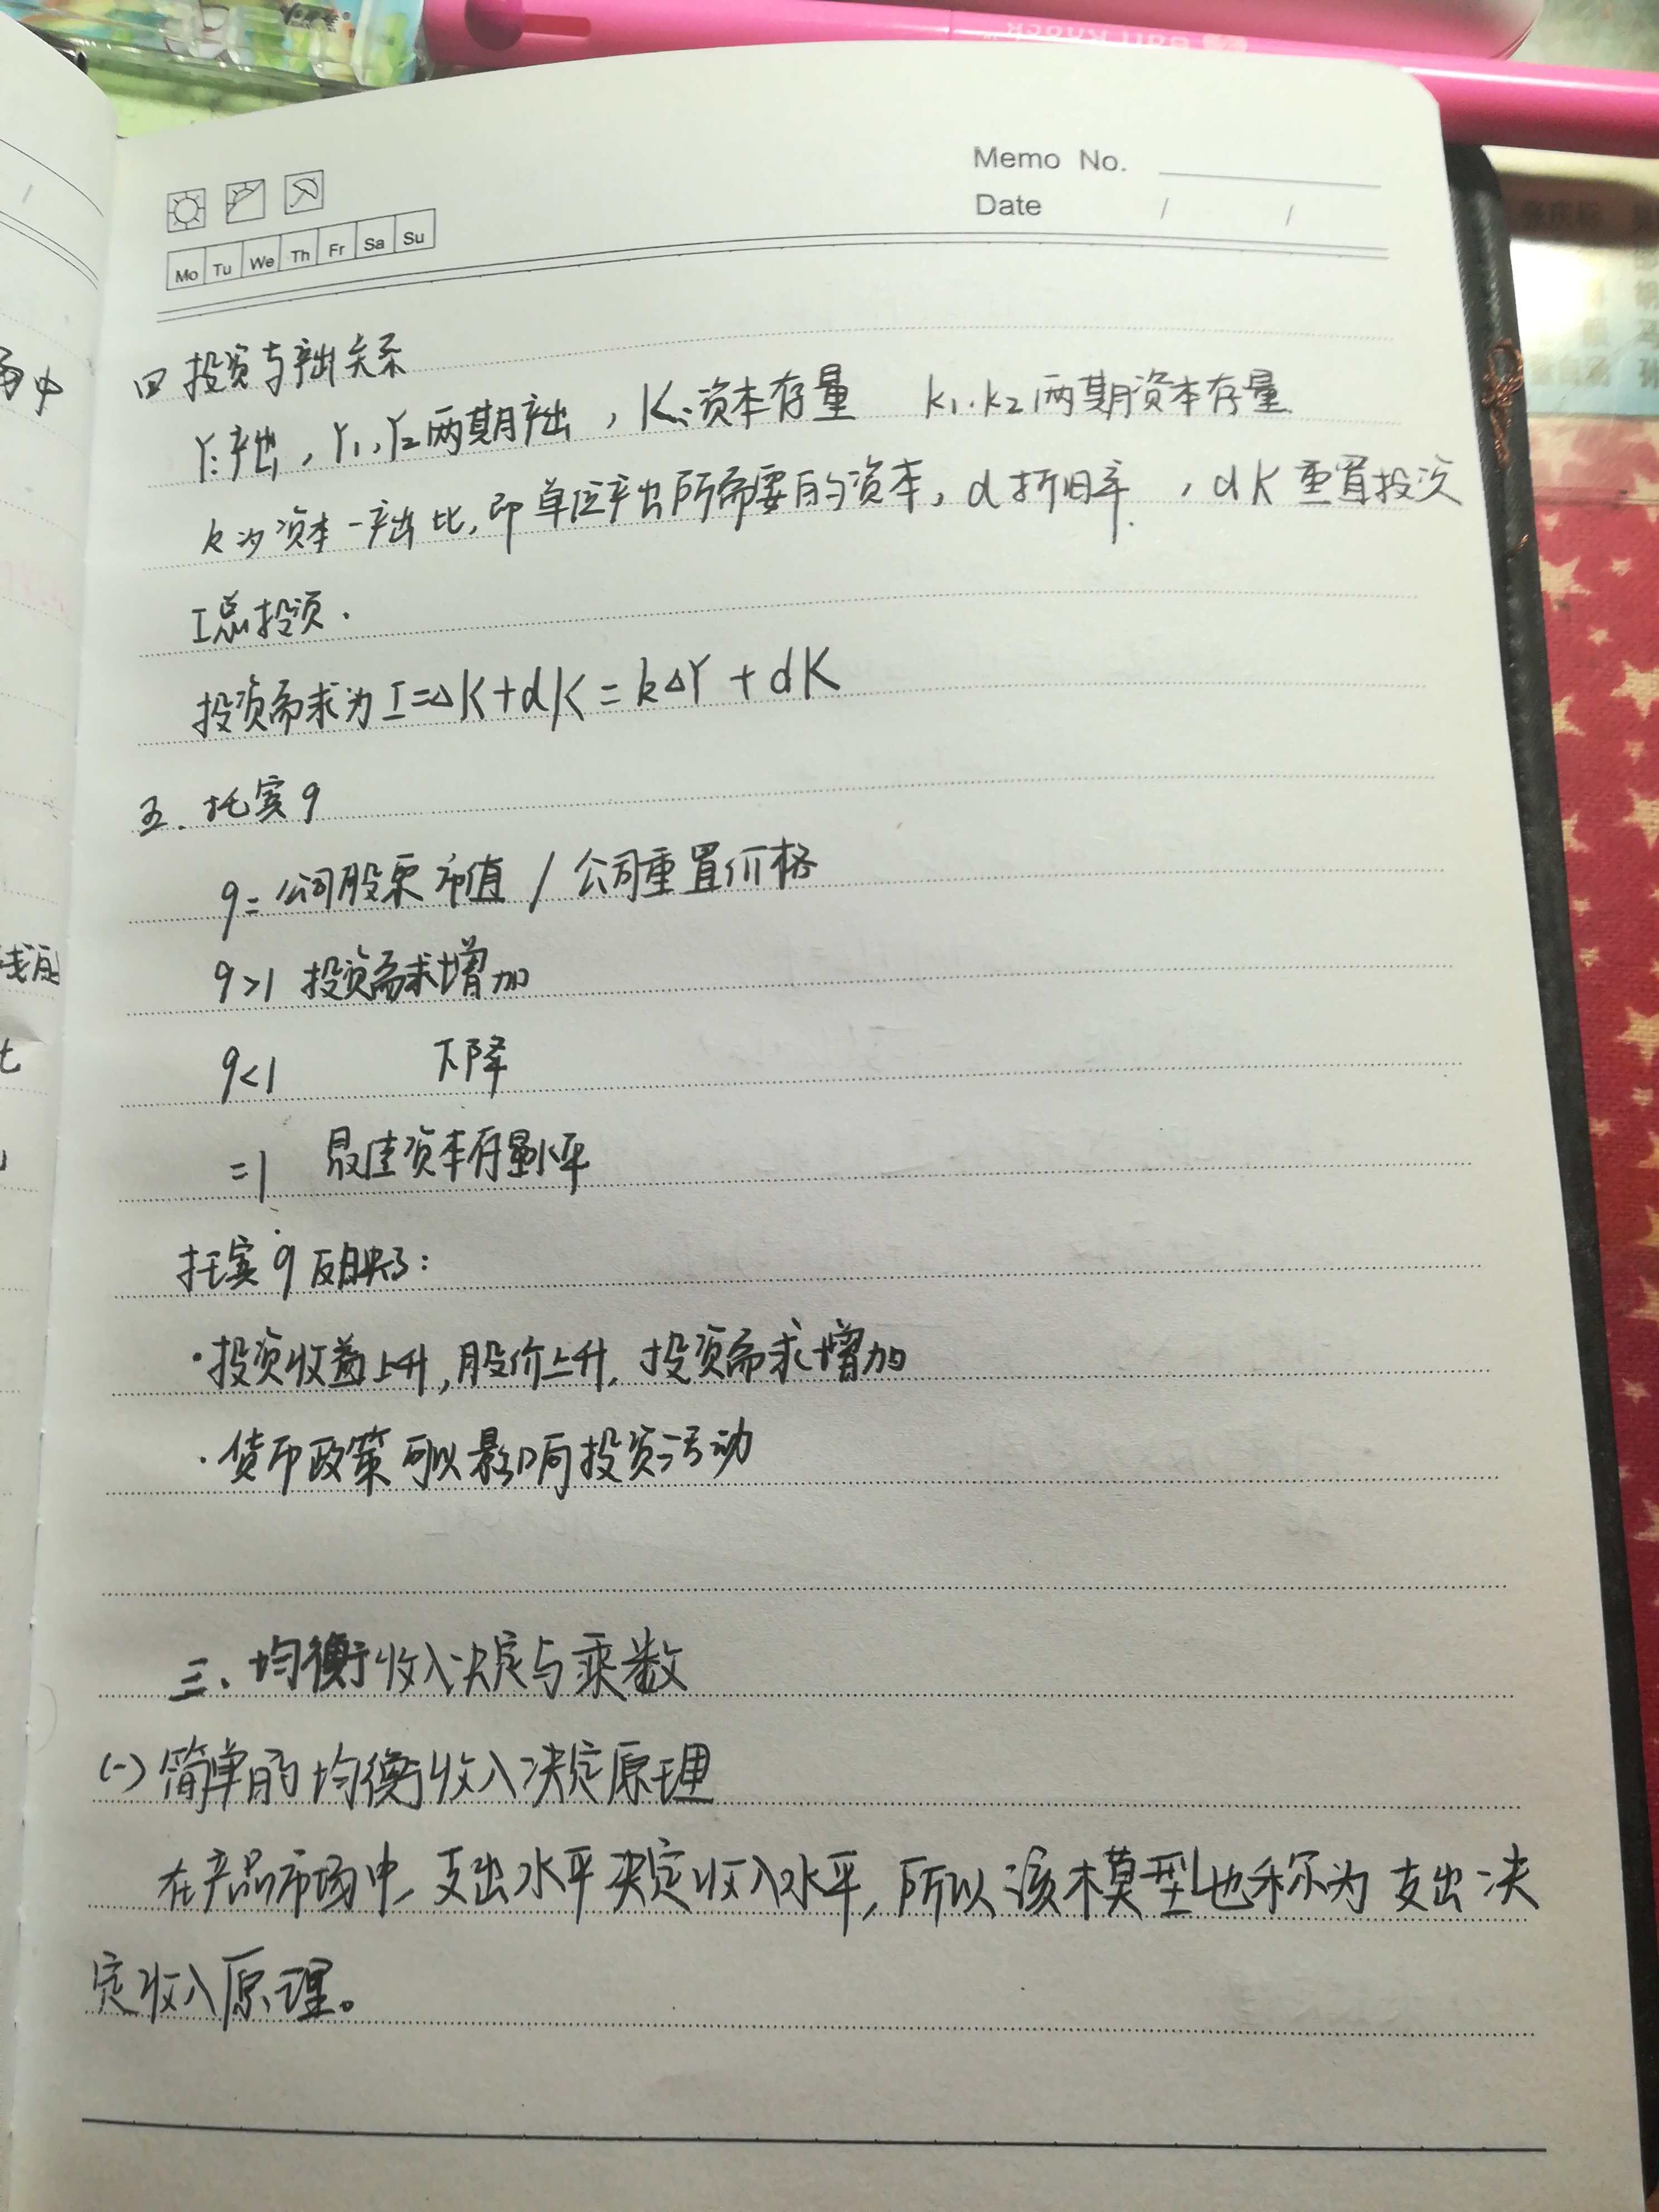 Memo No.
Date / /
Mo Tu We Th Fr Sa Su
四 投资与产出关系
Y:产出, Y1, Y2两期产出, K:资本存量 k1.k2两期资本存量
k为资本-产出比,即单位产出所需要的资本, d折旧率, dK重置投资
I总投资.
投资需求为I=△K+dK=k△Y+dK
五. 托宾q
q=公司股票市值/公司重置价格
q>1 投资需求增加
q<1 下降
=1 最佳资本存量水平
托宾q反映了:
·投资收益上升,股价上升,投资需求增加
·货币政策可以影响投资活动
三、均衡收入决定与乘数
(一)简单的均衡收入决定原理
在产品市场中,支出水平决定收入水平,所以该模型也称为支出决
定收入原理。